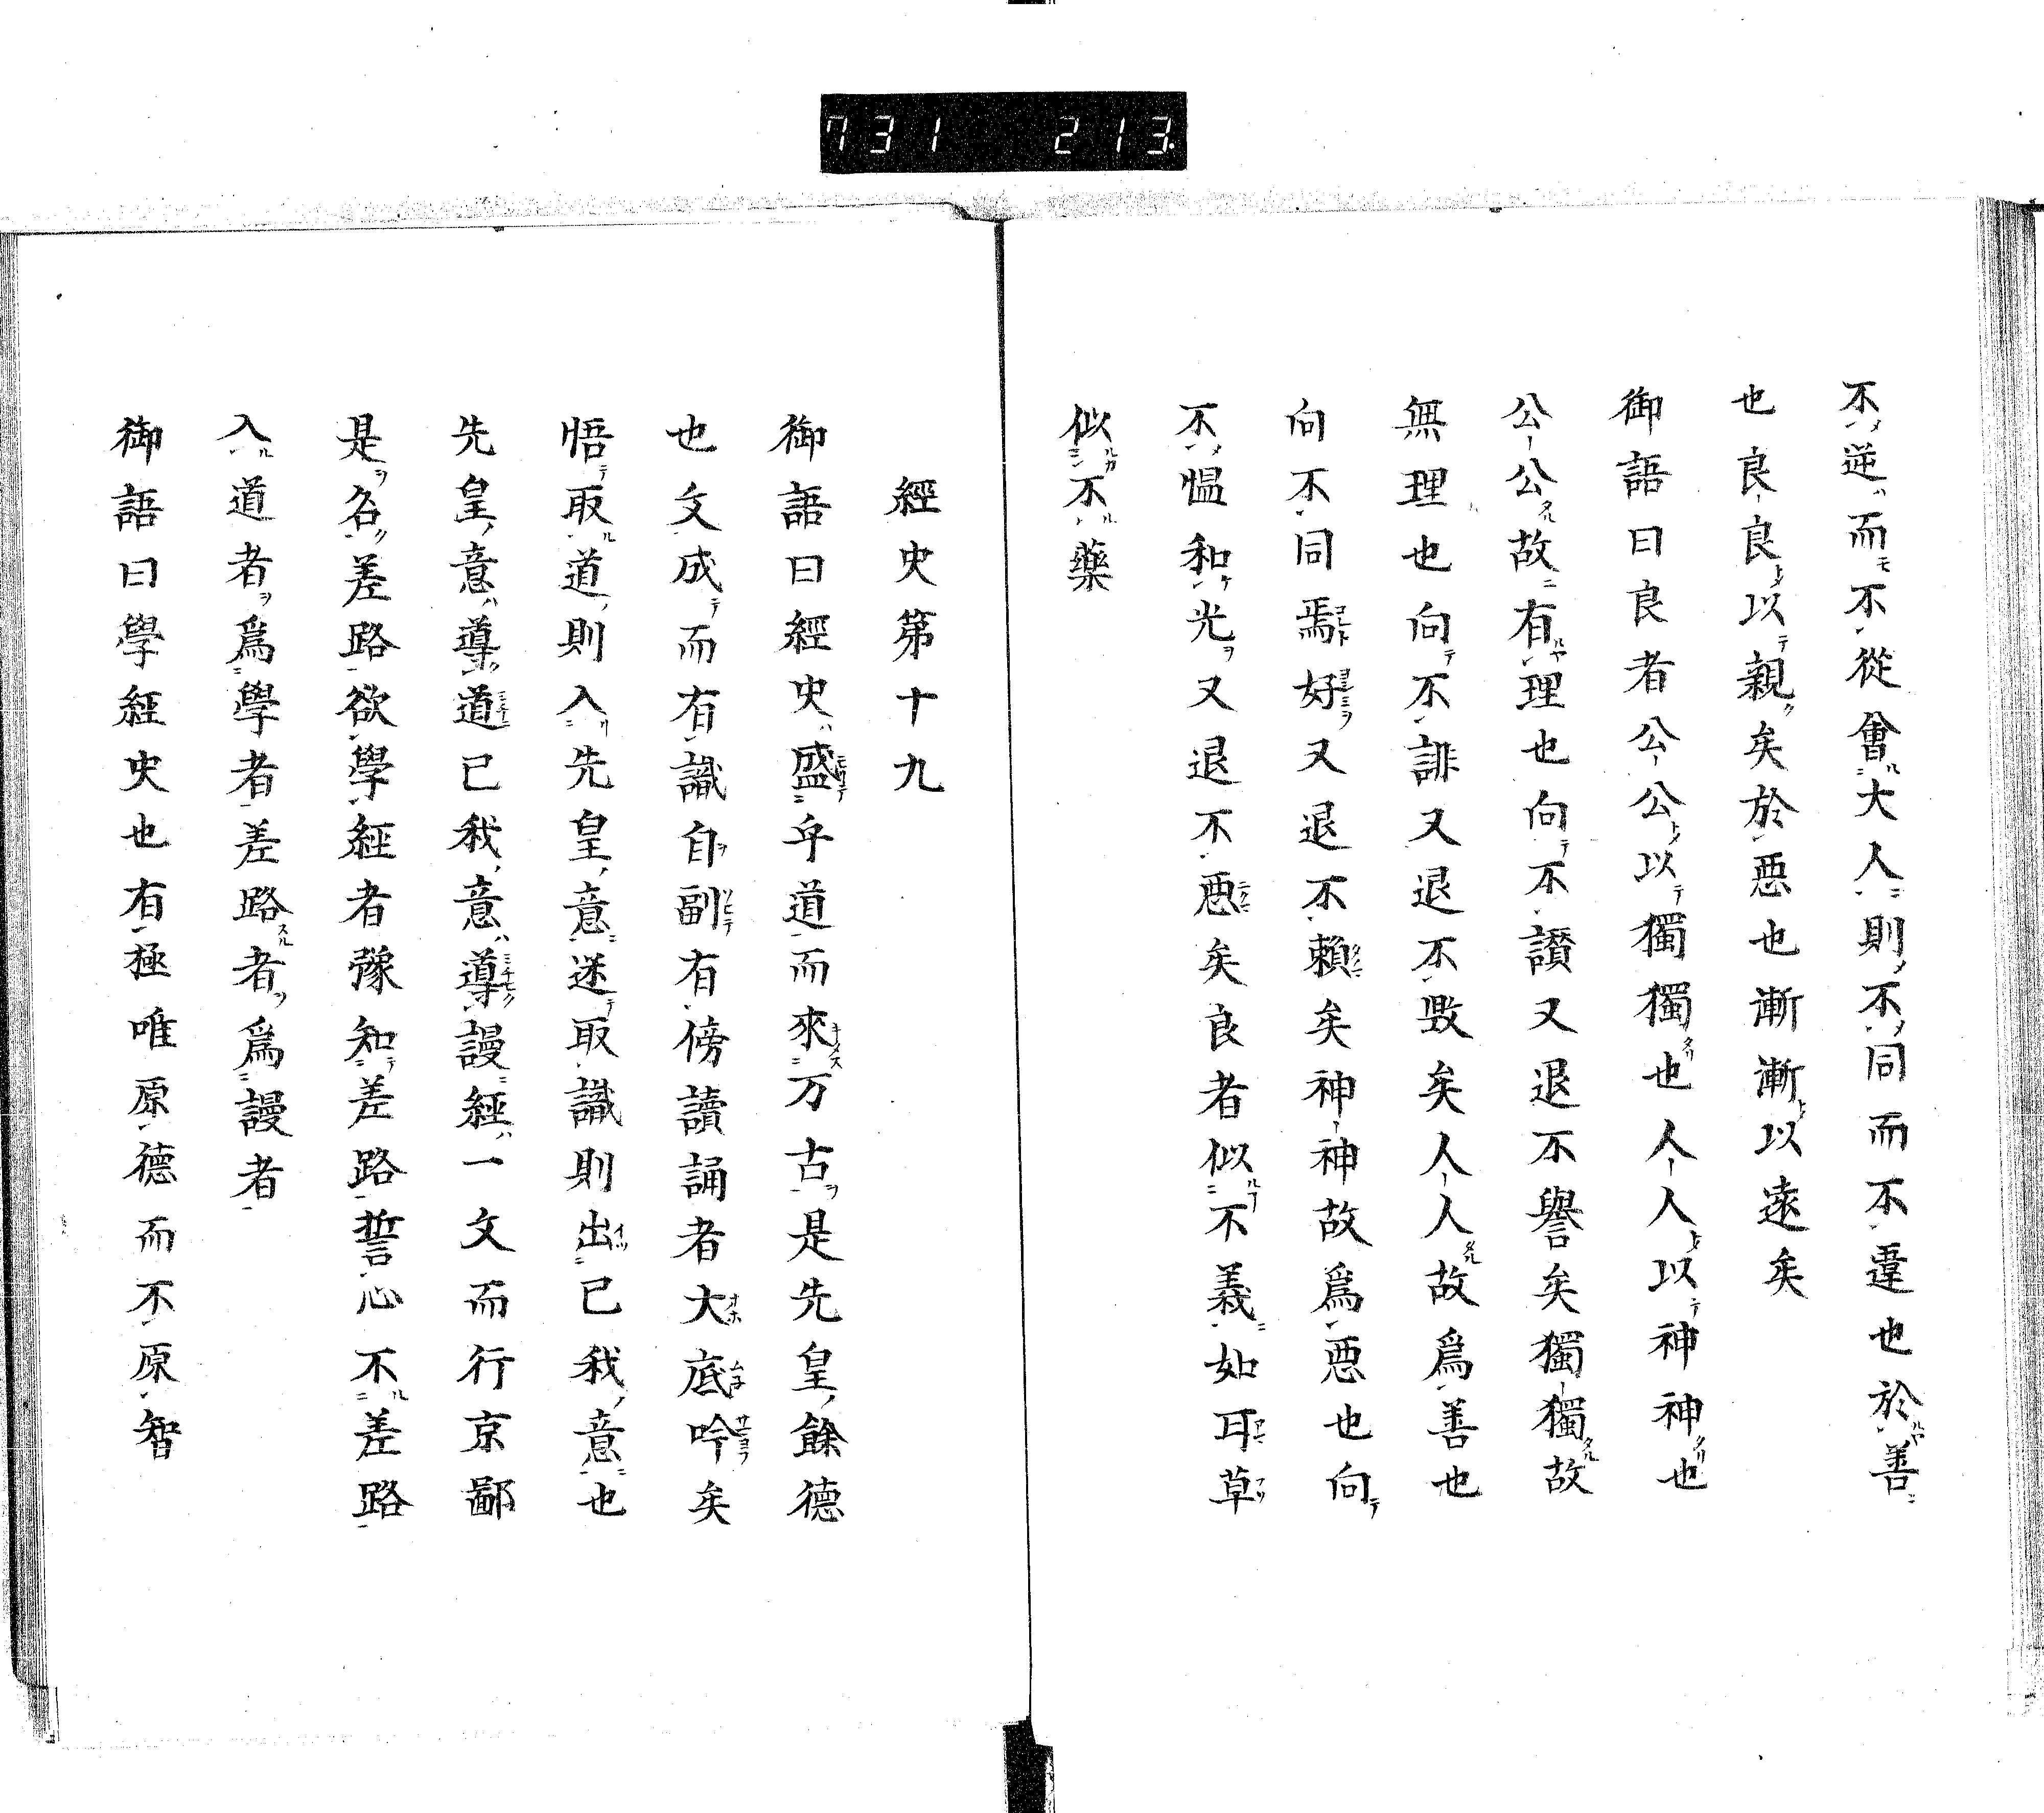 731 213
不逆而不從會大人則不同而不違也於善
也良良以親矣於惡也漸漸以遠矣
御語曰良者公公以獨獨也人人以神神也
公公故有理也向不讚又退不譽矣獨獨故
無理也向不誹又退不毀矣人人故爲善也
向不同焉好又退不賴矣神神故爲惡也向
不愠和光又退不惡矣良者似不義如耳草
似不藥
經史第十九
御語曰經史盛乎道而來万古是先皇餘德
也文成而有識自副有傍讀誦者大底吟矣
悟取道則入先皇意迷取識則出已我意也
先皇意導道已我意導謾經一文而行京鄙
是名差路欲學經者豫知差路誓心不差路
入道者爲學者差路者爲謾者
御語曰學經史也有極唯原德而不原智